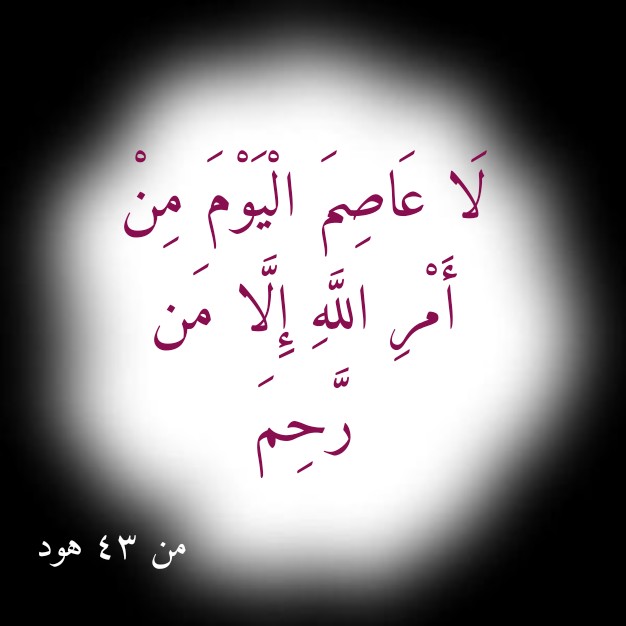 لَا عَاصِمَ الْيَوْمَ مِنْ
أَمْرِ اللَّهِ إِلَّا مَن
رَّحِمَ
من ٤٣ هود